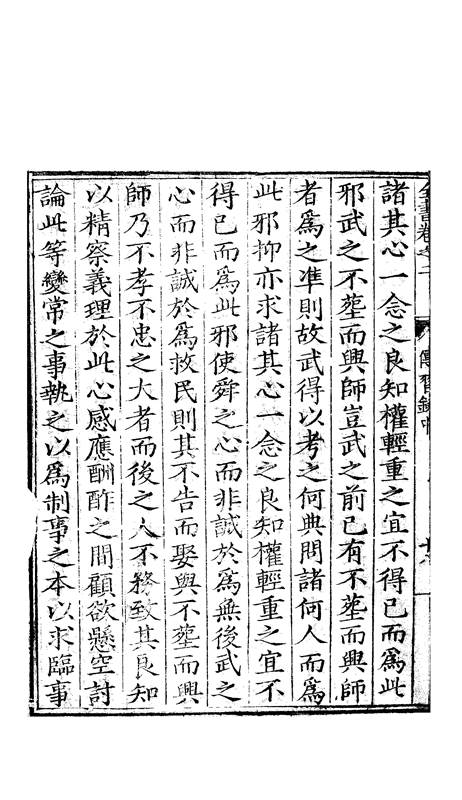 全書卷之二 傳習錄中
諸其心一念之良知權輕重之宜不得已而爲此
邪武之不塟而興師豈武之前已有不塟而興師
者爲之凖則故武得以考之何典問諸何人而爲
此邪抑亦求諸其心一念之良知權輕重之宜不
得已而爲此邪使舜之心而非誠於爲無後武之
心而非誠於爲救民則其不告而娶與不塟而興
師乃不孝不忠之大者而後之人不務致其良知
以精察義理於此心感應酬酢之間顧欲懸空討
論此等變常之事執之以爲制事之本以求臨事